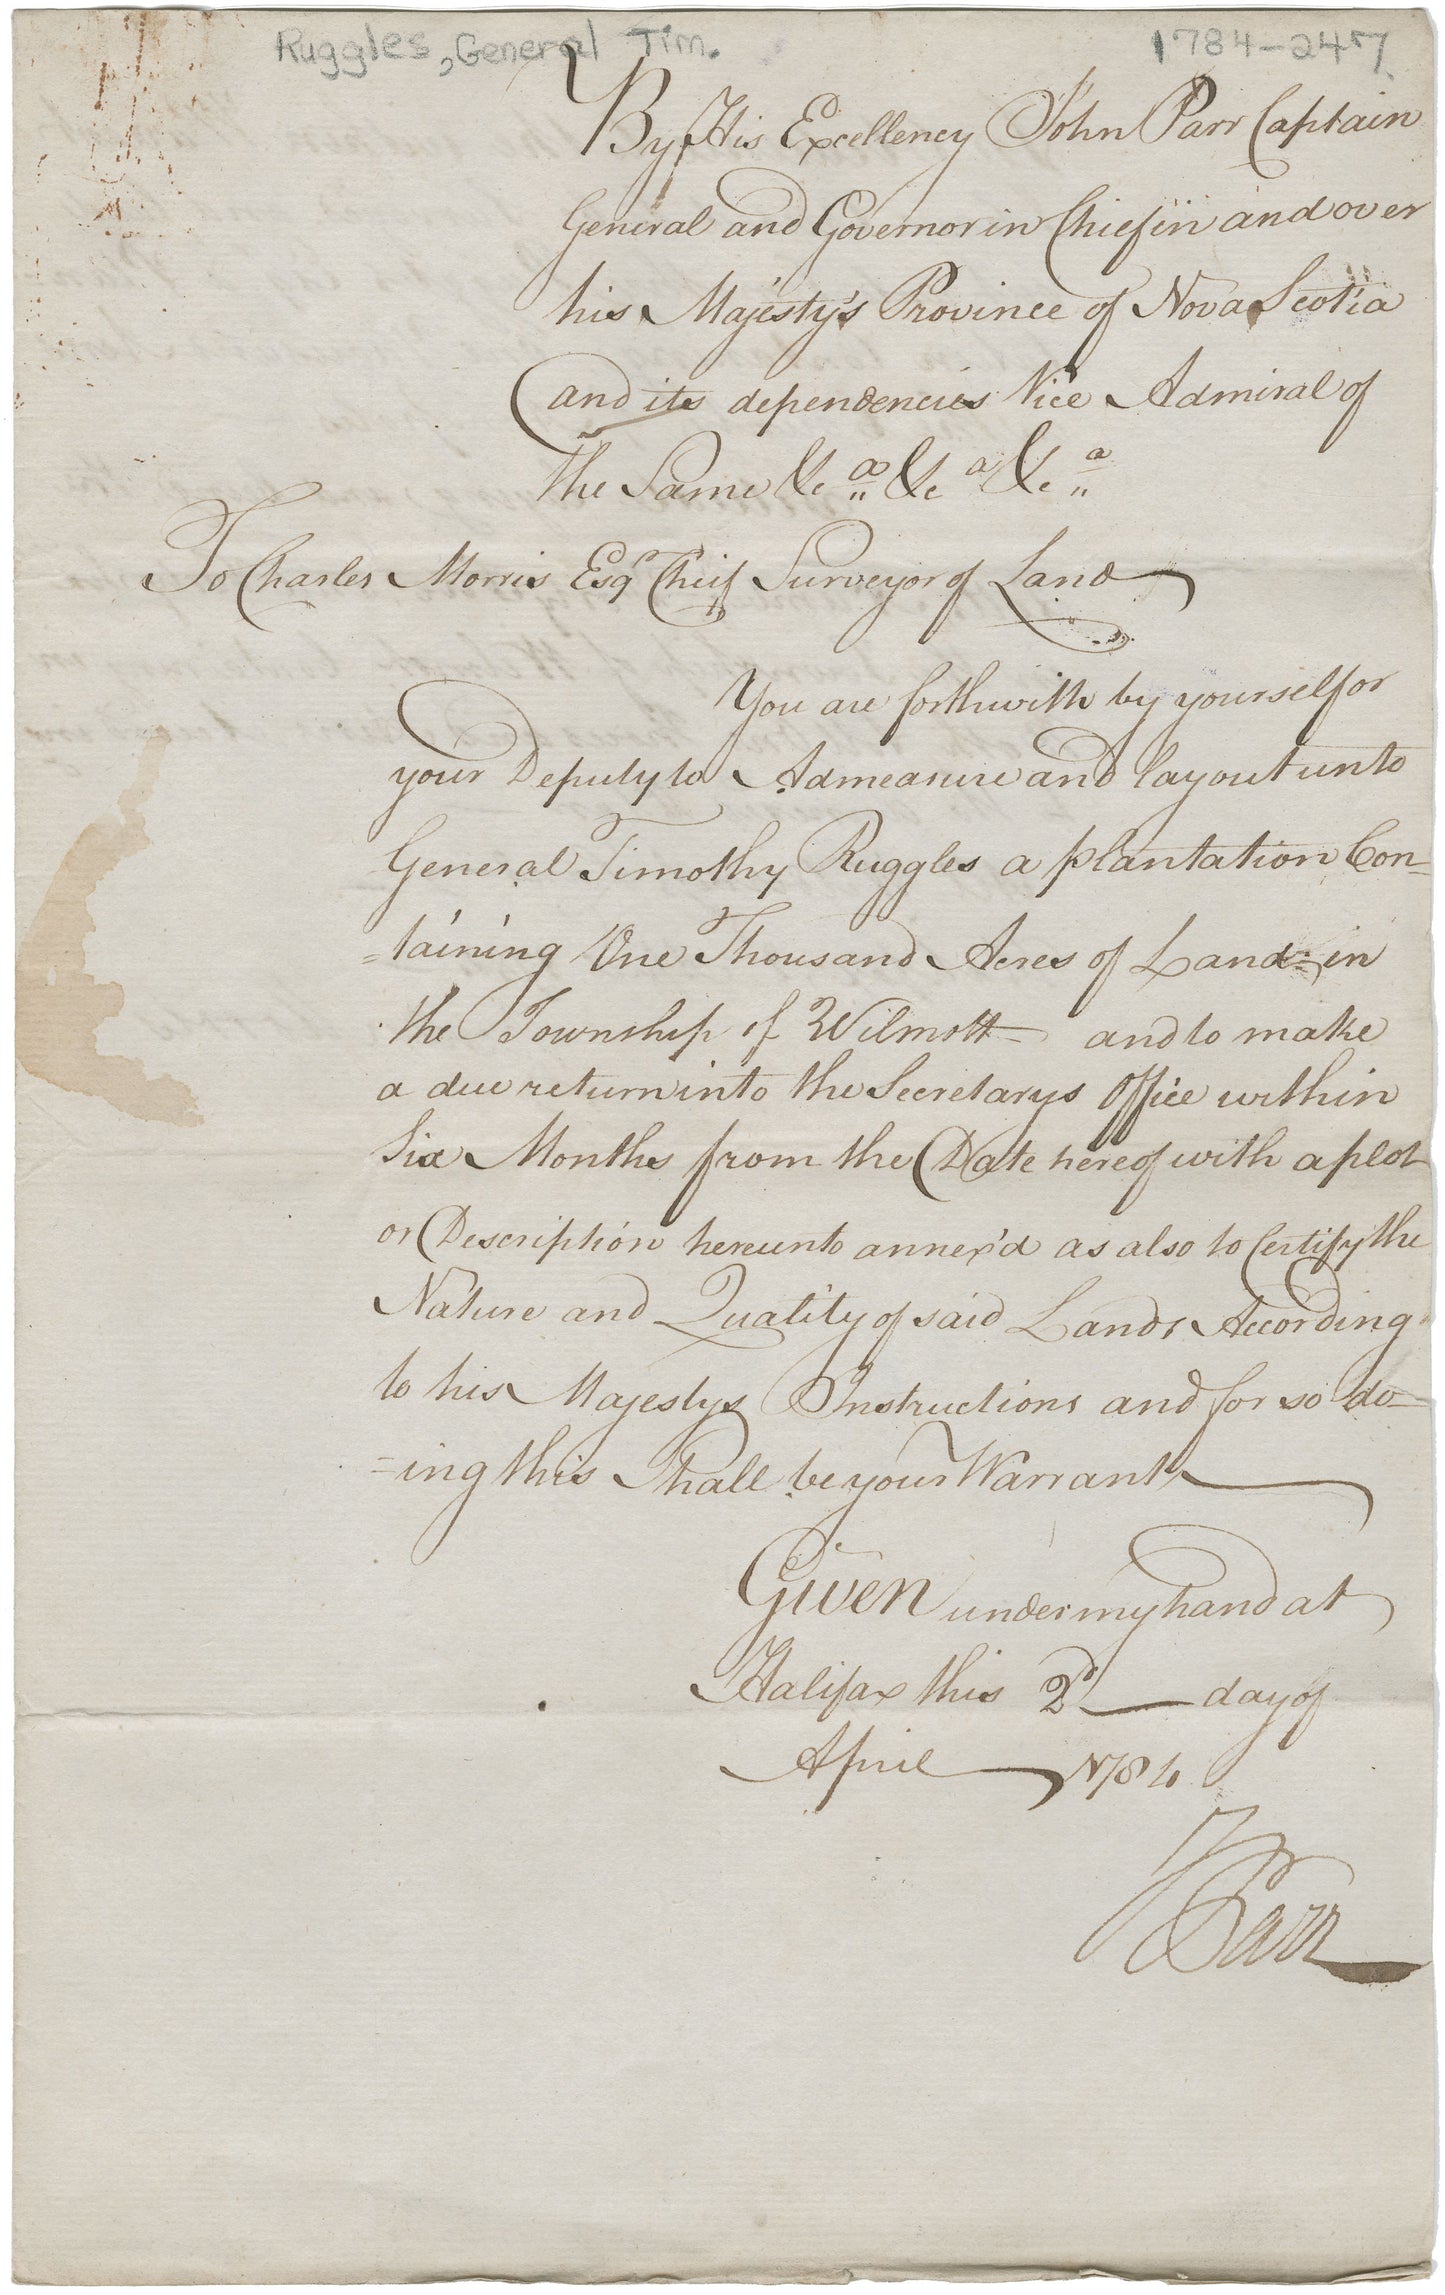 Ruggles, General Tim.
1784-247
By His Excellency John Parr Captain
General and Governor in Chief in and over
his Majesty's Province of Nova Scotia
and its dependencies Vice Admiral of
the Same &c.a &c a &c.a
To Charles Morris Esqr Chief Surveyor of Land
You are forthwith by yourself or
your Deputy to Admeasure and layout unto
General Timothy Ruggles a plantation Con=
=taining One Thousand Acres of Land in
the Township of Wilmott and to make
a due return into the Secretarys Office within
Six Months from the Date hereof with a plot
or Description hereunto annex'd as also to Certify the
Nature and Quality of said Lands According
to his Majestys Instructions and for so do=
=ing this Shall be your Warrant
Given under my hand at
Halifax this 2d day of
April 1784
J Parr